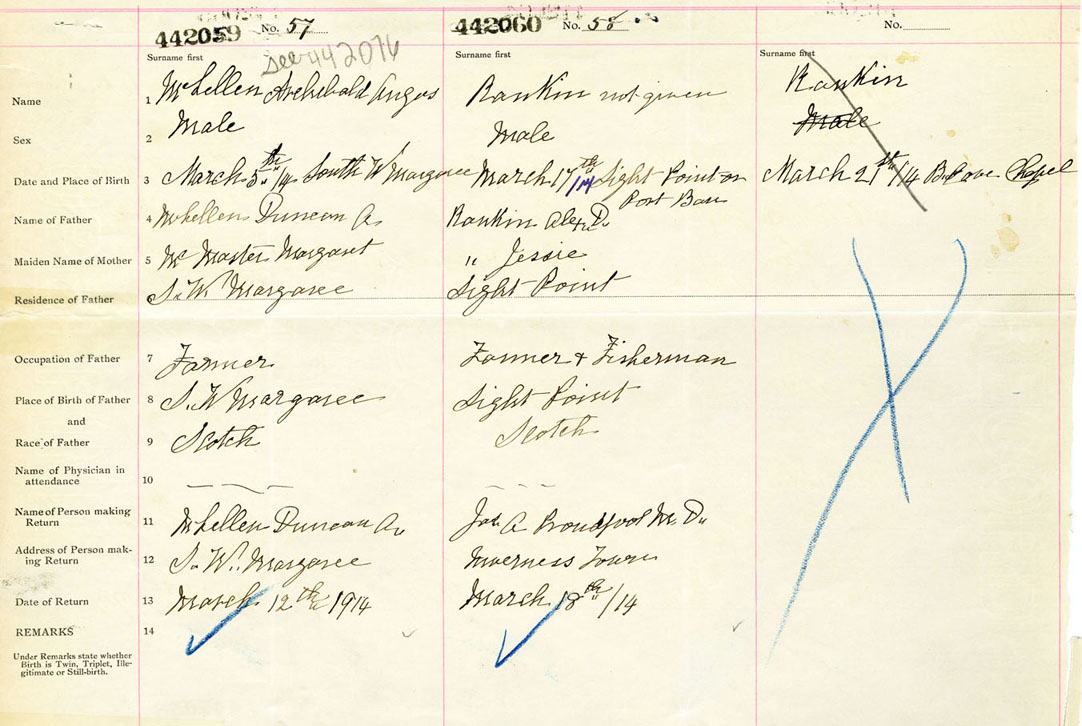 442059 No. 57 442060 No. 58 No.
see 442076
Surname first Surname first Surname first
Name 1 McLellen Archibald Angus Rankin not given Rankin
Sex 2 Male Male Male
Date and Place of Birth 3 March 5th/14 South W Margaree March 17th/14 Sight Point on March 21st/14 Chapel
Port Ban
Name of Father 4 McLellen Duncan A. Rankin Alex D.
Maiden Name of Mother 5 Mc Master Margaret " Jessie
Residence of Father S. W Margaree Sight Point
Occupation of Father 7 Farmer Farmer + Fisherman
Place of Birth of Father 8 S. W Margaree Sight Point
and
Race of Father 9 Scotch Scotch
Name of Physician in
attendance 10
Name of Person making
Return 11 McLellen Duncan A. Jas A Proudfoot M. D.
Address of Person mak-
ing Return 12 S. W. Margaree Inverness Town
Date of Return 13 March 12th 1914 March 18th/14
REMARKS 14
Under Remarks state whether
Birth is Twin, Triplet, Ille-
gitimate or Still-birth.